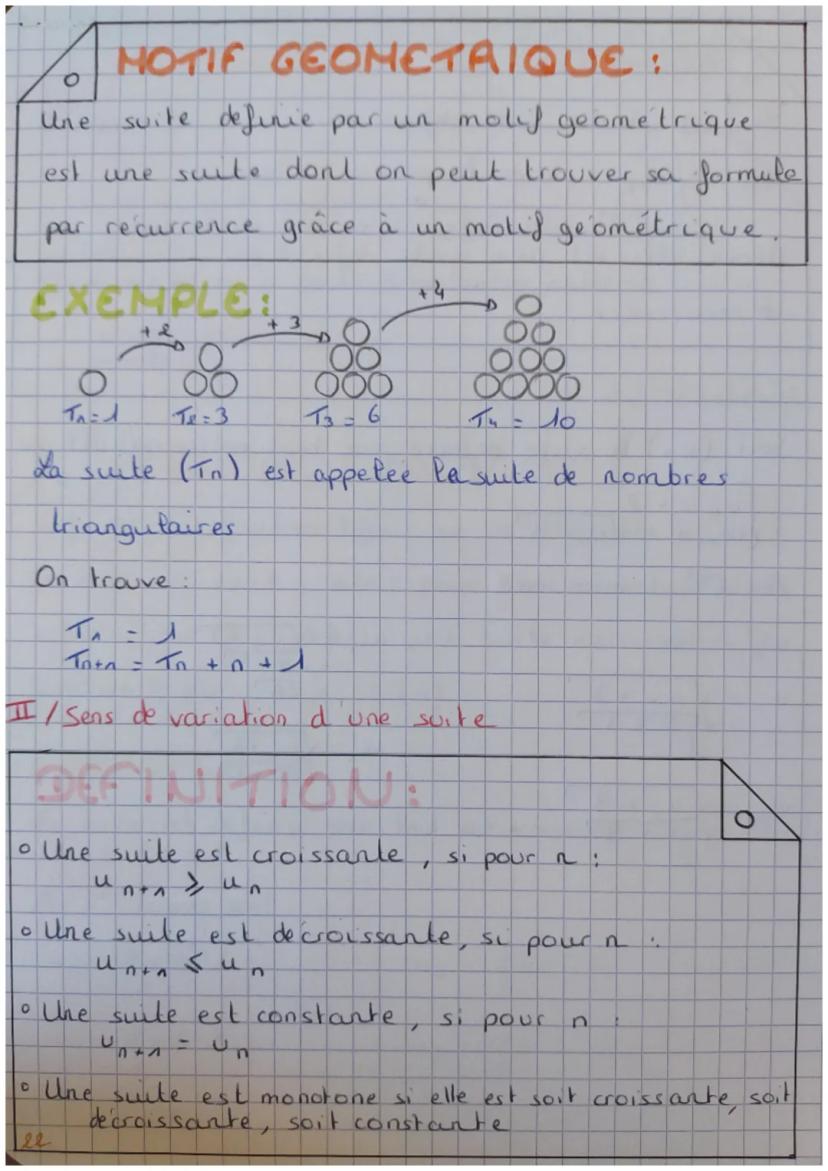 MOTIF GEOMETRIQUE :
Une suite definie par un motif geométrique
est une suite dont on peut trouver sa formule
par récurrence grâce à un motif géométrique.
EXEMPLE :
+2 +3 +4
T₁ = 1 T₂ = 3 T₃ = 6 T₄ = 10
La suite (Tn) est appelée la suite de nombres
triangulaires
On trouve :
T₁ = 1
Tn+1 = Tn + n + 1
II / Sens de variation d'une suite
DEFINITION :
o Une suite est croissante, si pour n :
u n+1 ⩾ u n
o Une suite est décroissante, si pour n :
u n+1 ⩽ u n
o Une suite est constante, si pour n :
u n+1 = u n
o Une suite est monotone si elle est soit croissante, soit
décroissante, soit constante
22